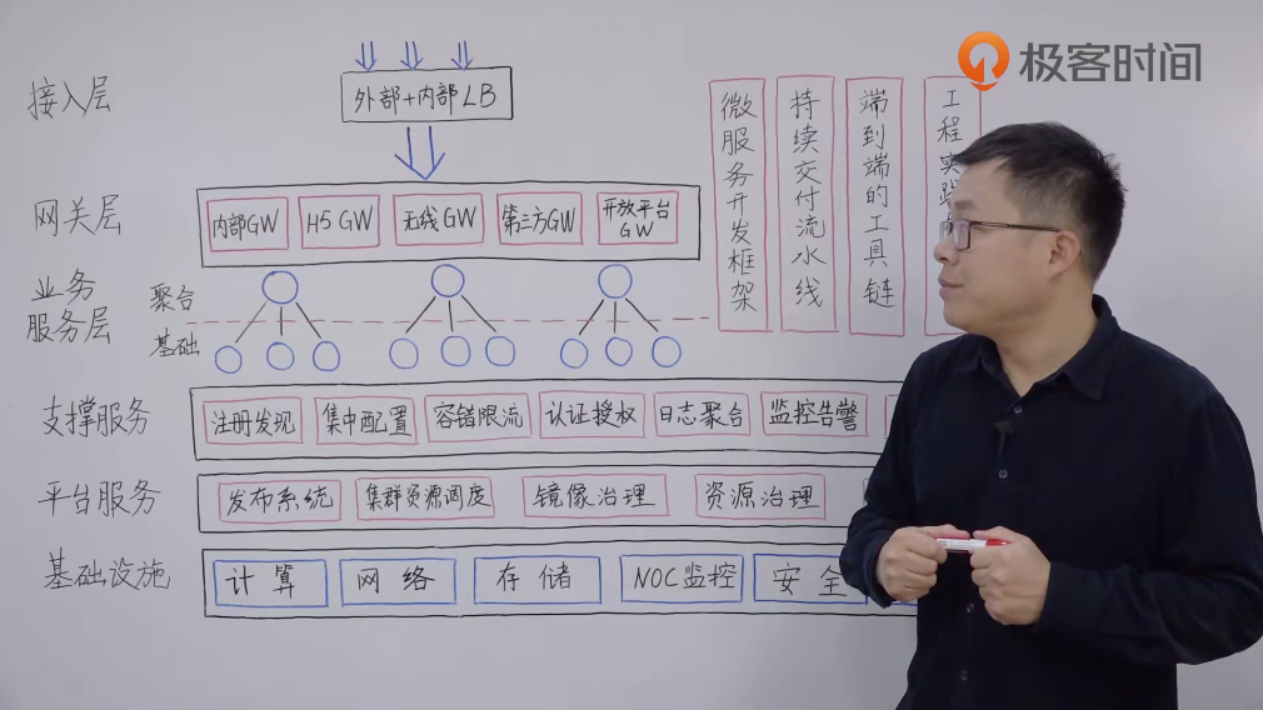 极客时间
接入层
外部+内部LB
网关层
内部GW
H5 GW
无线GW
第三方GW
开放平台
GW
业务
服务层
聚合
基础
支撑服务
注册发现
集中配置
容错限流
认证授权
日志聚合
监控告警
平台服务
发布系统
集群资源调度
镜像治理
资源治理
基础设施
计算
网络
存储
NOC监控
安全
微服务开发框架
持续交付流水线
端到端的工具链
工程实践